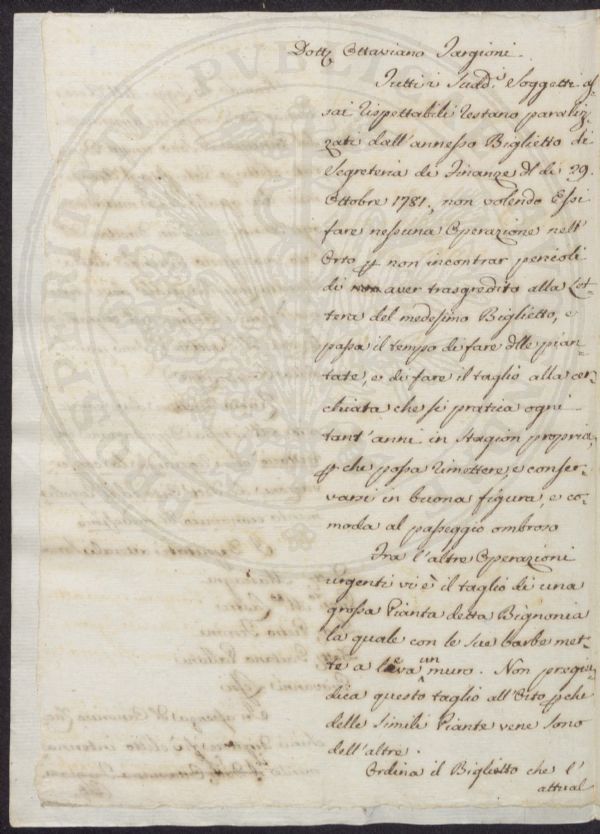 Dott. Ottaviano Targioni.
Tutti i Sudd.i Soggetti as-
sai rispettabili restano paraliz-
zati dall'annesso Biglietto di
Segreteria di Finanze dl di 29.
Ottobre 1781., non volendo Essi
fare nessuna Operazione nell'
Orto p non incontrar pericoli
di aver trasgredito alla Let-
tera del medesimo Biglietto, e
passa il tempo di fare dlle pian-
tate, e di fare il taglio alla cer-
chiata che si pratica ogni
tant'anni in stagion propria,
p che possa rimettere, e conser-
varsi in buona figura, e co-
moda al passeggio ombroso
Fra l'altre Operazioni
urgenti vi è il taglio di una
grossa Pianta detta Bignonia
la quale con le sue barbe met-
te a leva un muro. Non pregiu-
dica questo taglio all'Orto pche
delle simili Piante vene sono
dell'altre.
Ordina il Biglietto che l'
attual